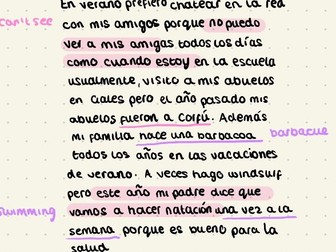 En verano prefiero chatear en la red
con mis amigos porque no puedo
can't see
ver a mis amigas todos los días
como cuando estoy en la escuela
usualmente, visito a mis abuelos
en Gales pero el año pasado mis
abuelos fueron a Corfú. Además
mi familia hace una barbacoa barbacue
todos los años en las vacaciones
de verano. A veces hago windsurf
pero este año mi padre dice que
swimming vamos a hacer natación una vez a la
semana porque es bueno para la
salud